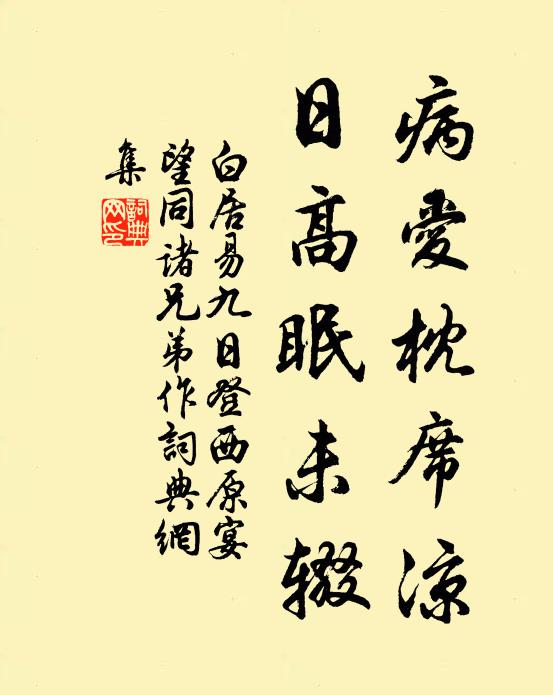 病愛枕席涼
日高眠未辍
白居易九日登西原宴
望同诸兄弟作詞典網
集
詞典網印